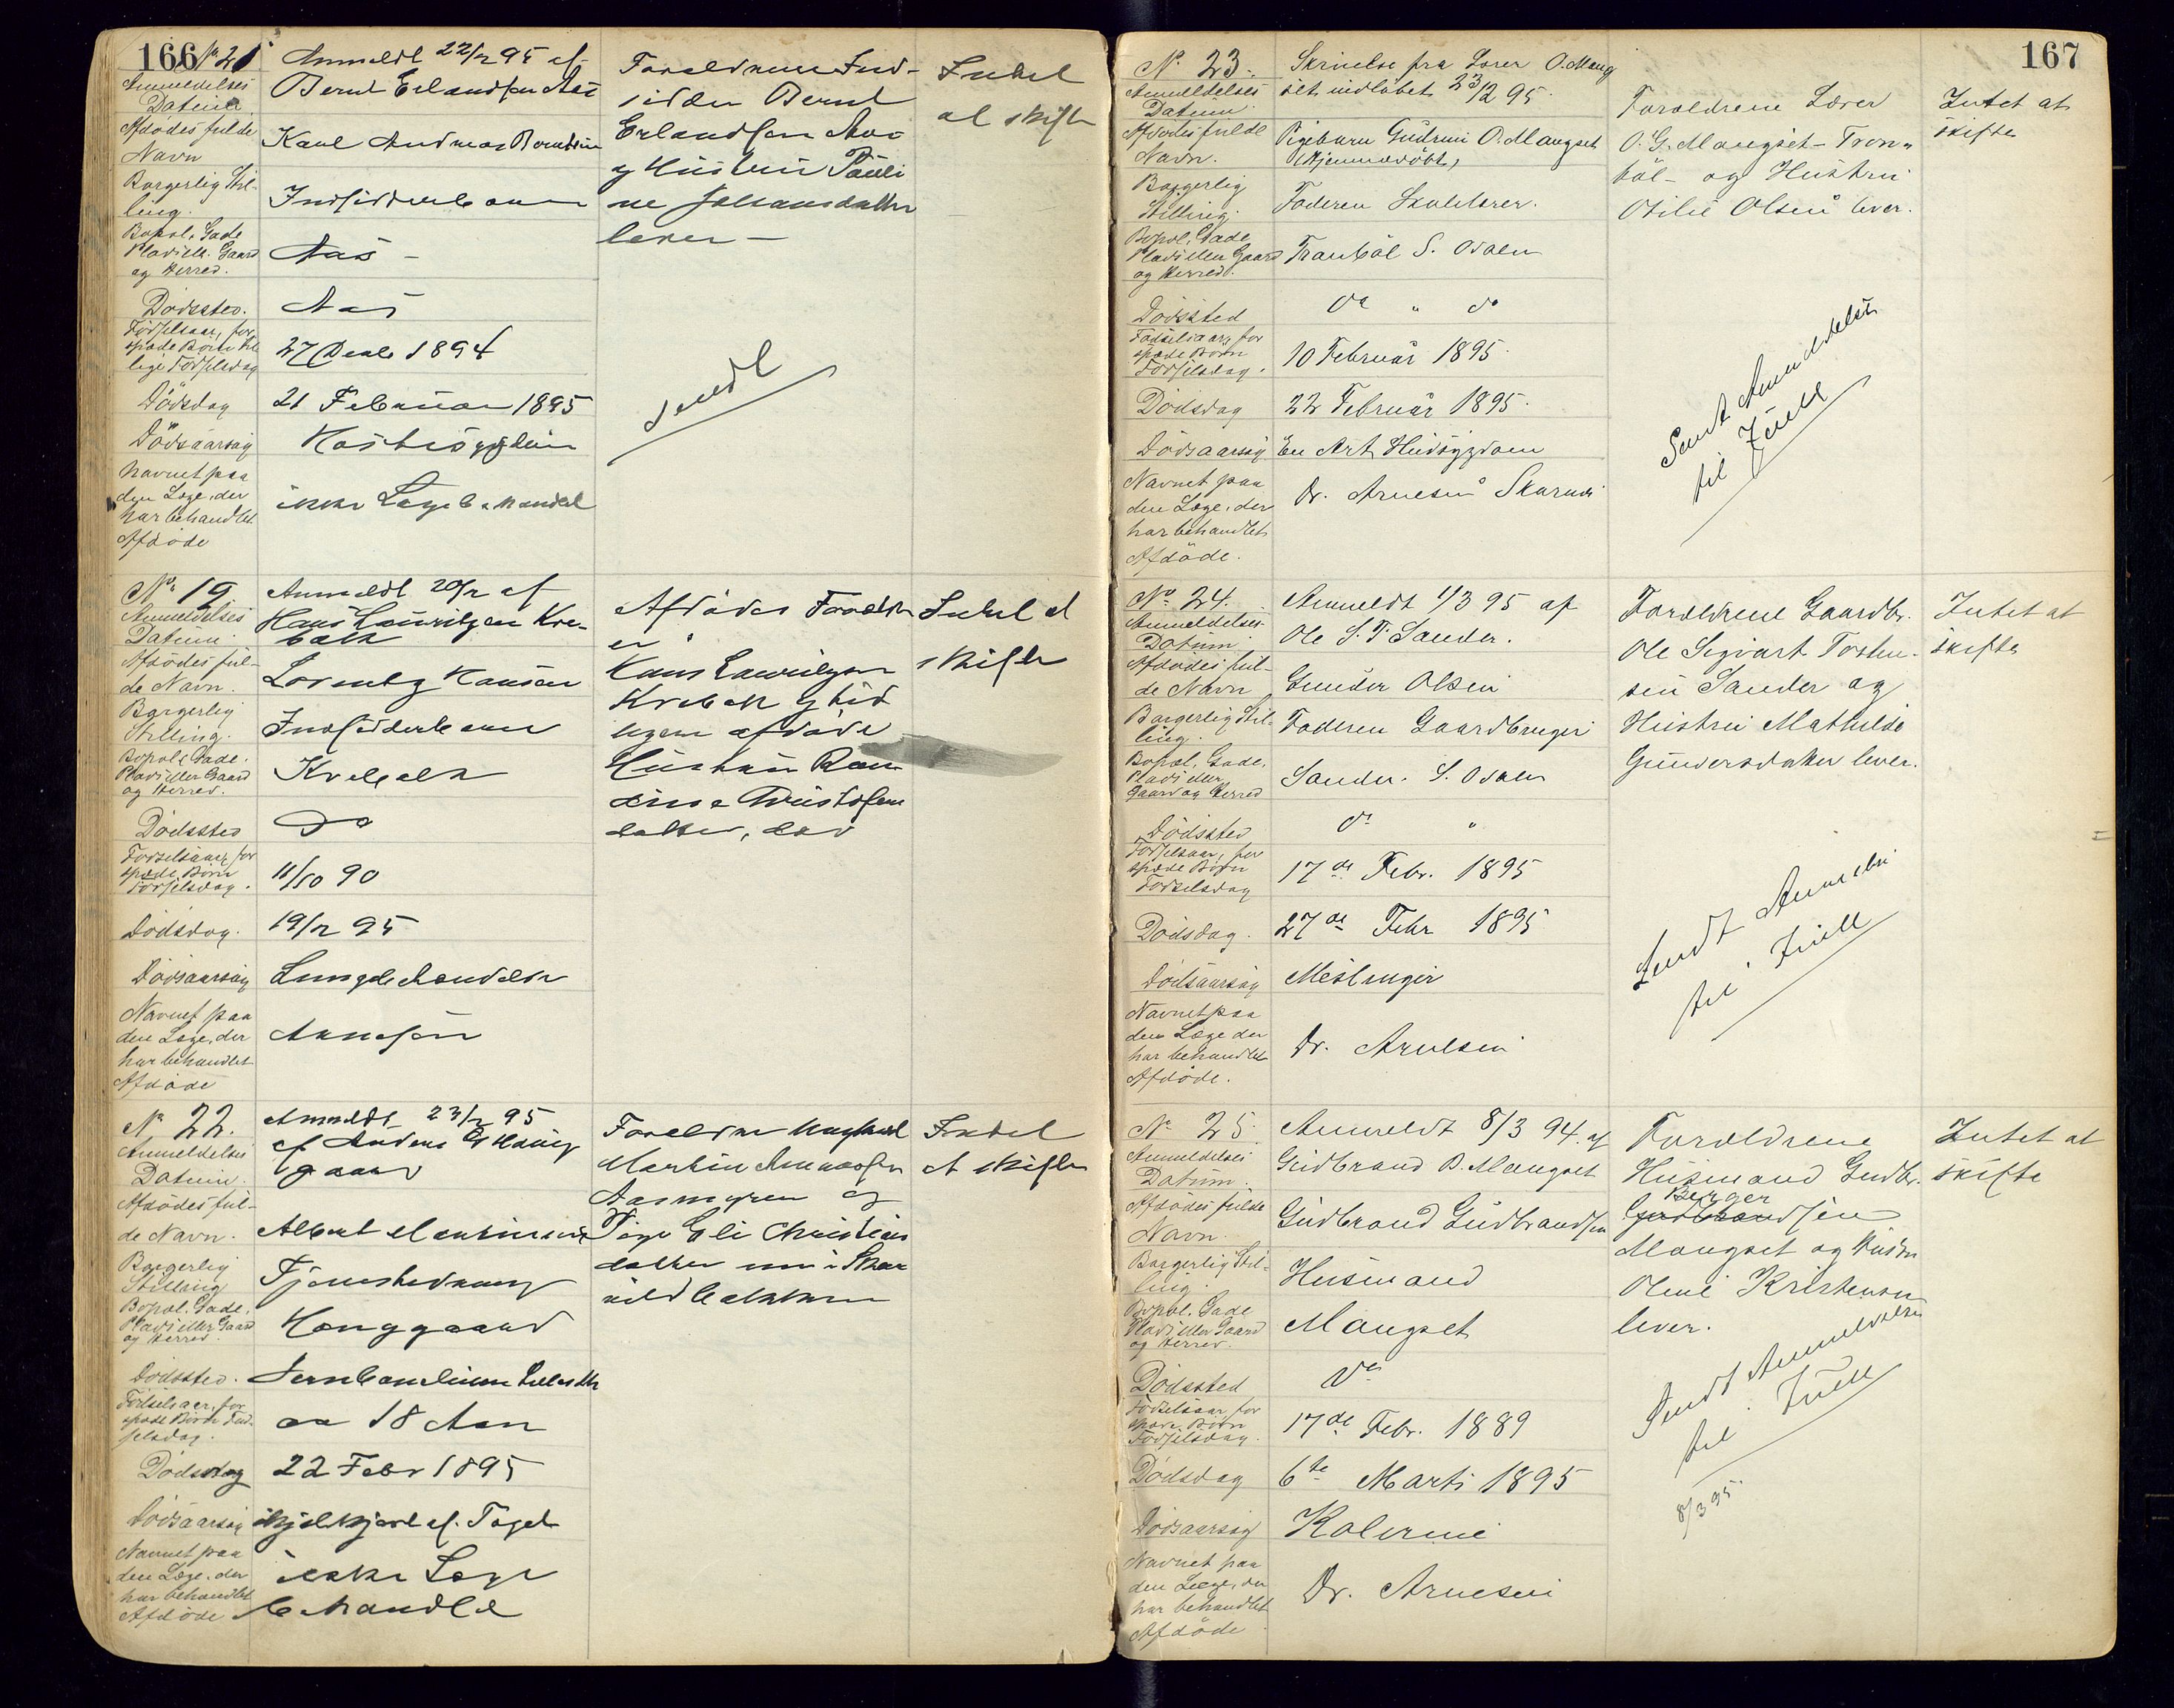 166
No 21
Anmeldt 22/2 95 af
Anmeldelses
Datum
Bernt Erlandsen Aas
Afdødes fulde
Navn
Karl Andreas Berntsen
Borgerlig Stil-
ling.
Indsidderbarn
Bopæl, Gade
Plads ell. Gaard
og Herred.
Aas
Dødssted.
Aas
Fødselsaar, for
spæde Børn til
lige Fødselsdag
27 Decbr 1894
Dødsdag
21 Februar 1895
Dødsaarsag
Halssygdom
Navnet paa
den Læge, der
har behandlet
Afdøde
ikke Lægebehandlet
Forældrene Ind-
sidder Bernt
Erlandsen Aas
og Hustru Pauli
ne Johansdatter
lever
sendt
Intet
at skifte
No 19
Anmeldt 20/2 af
Anmeldelses
Datum
Hans Lauritzen Kre-
bæk
Afdødes ful-
de Navn.
Lorentz Hansen
Borgerlig
Stilling.
Indsidderbarn
Bopæl, Gade
Plads eller Gaard
og Herred.
Krebæk
Dødssted
Do
Fødselsaar, for
spæde Børn
Fødselsdag.
11/10 90
Dødsdag.
19/2 95
Dødsaarsag
Lungebetændelse
Navnet paa
den Læge, der
har behandlet
Afdøde
Arnesen
Afdødes Forældre
er
Hans Lauritzen
Krebæk og tid
ligere afdøde
Hustru
datter, død
Intet at
skifte
No 22.
Anmeldt 23/2 95
Anmeldelses
Datum.
af Anders
gaard
Afdødes ful-
de Navn.
Albert Martinsen
Borgerlig
Stilling
Tjenestedreng
Bopæl, Gade,
Plads eller Gaard
og Herred.
Honggaard
Dødssted.
Jernbanelinien
Fødselsaar, for
spæde Børn Fød-
selsdag.
ca 18 Aar
Dødsdag
22 Febr 1895
Dødsaarsag
ihjelkjørt af Toget
Navnet paa
den Læge, der
har behandlet
Afdøde
ikke Læge
behandlet
Forældre
Martin
Aasmyren og
Pige Eli Christians
datter nu i Skar
nes
Intet
at skifte
167
No 23.
Skrivelse fra Lærer O. Mang
Anmeldelses
Datum
set indløbet 23/2 95.
Afdødes fulde
Navn.
Pigebarn Gudrun O. Mangset
(hjemmedøbt)
Borgerlig
Stilling.
Faderen Skolelærer.
Bopæl, Gade
Plads eller Gaard
og Herred.
Tronbøl S. Odalen
Dødssted
do " do
Fødselsaar, for
spæde Børn
Fødselsdag.
10 Februar 1895.
Dødsdag
22 Februar 1895.
Dødsaarsag
En Art Hudsygdom
Navnet paa
den Læge, der
har behandlet
Afdøde.
Dr. Arnesen Skarnes
Forældrene Lærer
O. G. Mangset Tron-
bøl og Hustru
Otilie Olsen lever.
Sendt Anmeldelse
til Juell
Intet at
skifte
No 24.
Anmeldt 1/3 95 af
Anmeldelses
Datum
Ole S. T. Sander.
Afdødes ful-
de Navn
Gunder Olsen
Borgerlig Stil-
ling.
Faderen Gaardbruger
Bopæl, Gade,
Plads eller
Gaard og Herred
Sander. S. Odalen
Dødssted
do "
Fødselsaar, for
spæde Børn
Fødselsdag
17de Febr. 1895
Dødsdag.
27de Febr 1895
Dødsaarsag
Meslinger
Navnet paa
den Læge der
har behandlet
Afdøde.
Dr. Arnesen
Forældrene Gaardbr.
Ole Sigvart Tosten-
sen Sander og
Hustru Mathilde
Gundersdatter lever.
Sendt Anmeldelse
til Juell
Intet at
skifte
No 25.
Anmeldt 8/3 94 af
Anmeldelses
Datum.
Gudbrand B. Mangset
Afdødes fulde
Navn.
Gudbrand Gudbrandsen
Borgerlig Stil-
ling
Husmand
Bopæl, Gade
Plads eller Gaard
og Herred.
Mangset
Dødssted
do
Fødselsaar, for
spæde Børn
Fødselsdag.
17de Febr. 1889
Dødsdag
6te Marts 1895
Dødsaarsag
Kolerine
Navnet paa
den Læge, der
har behandlet
Afdøde
Dr. Arnesen
Forældrene
Husmand Gudbr.
Berger
Gudbrandsen
Mangset og Hustru
Oline Kristensen
lever.
Sendt Anmeldelse
til Juell
8/3 95.
Intet at
skifte